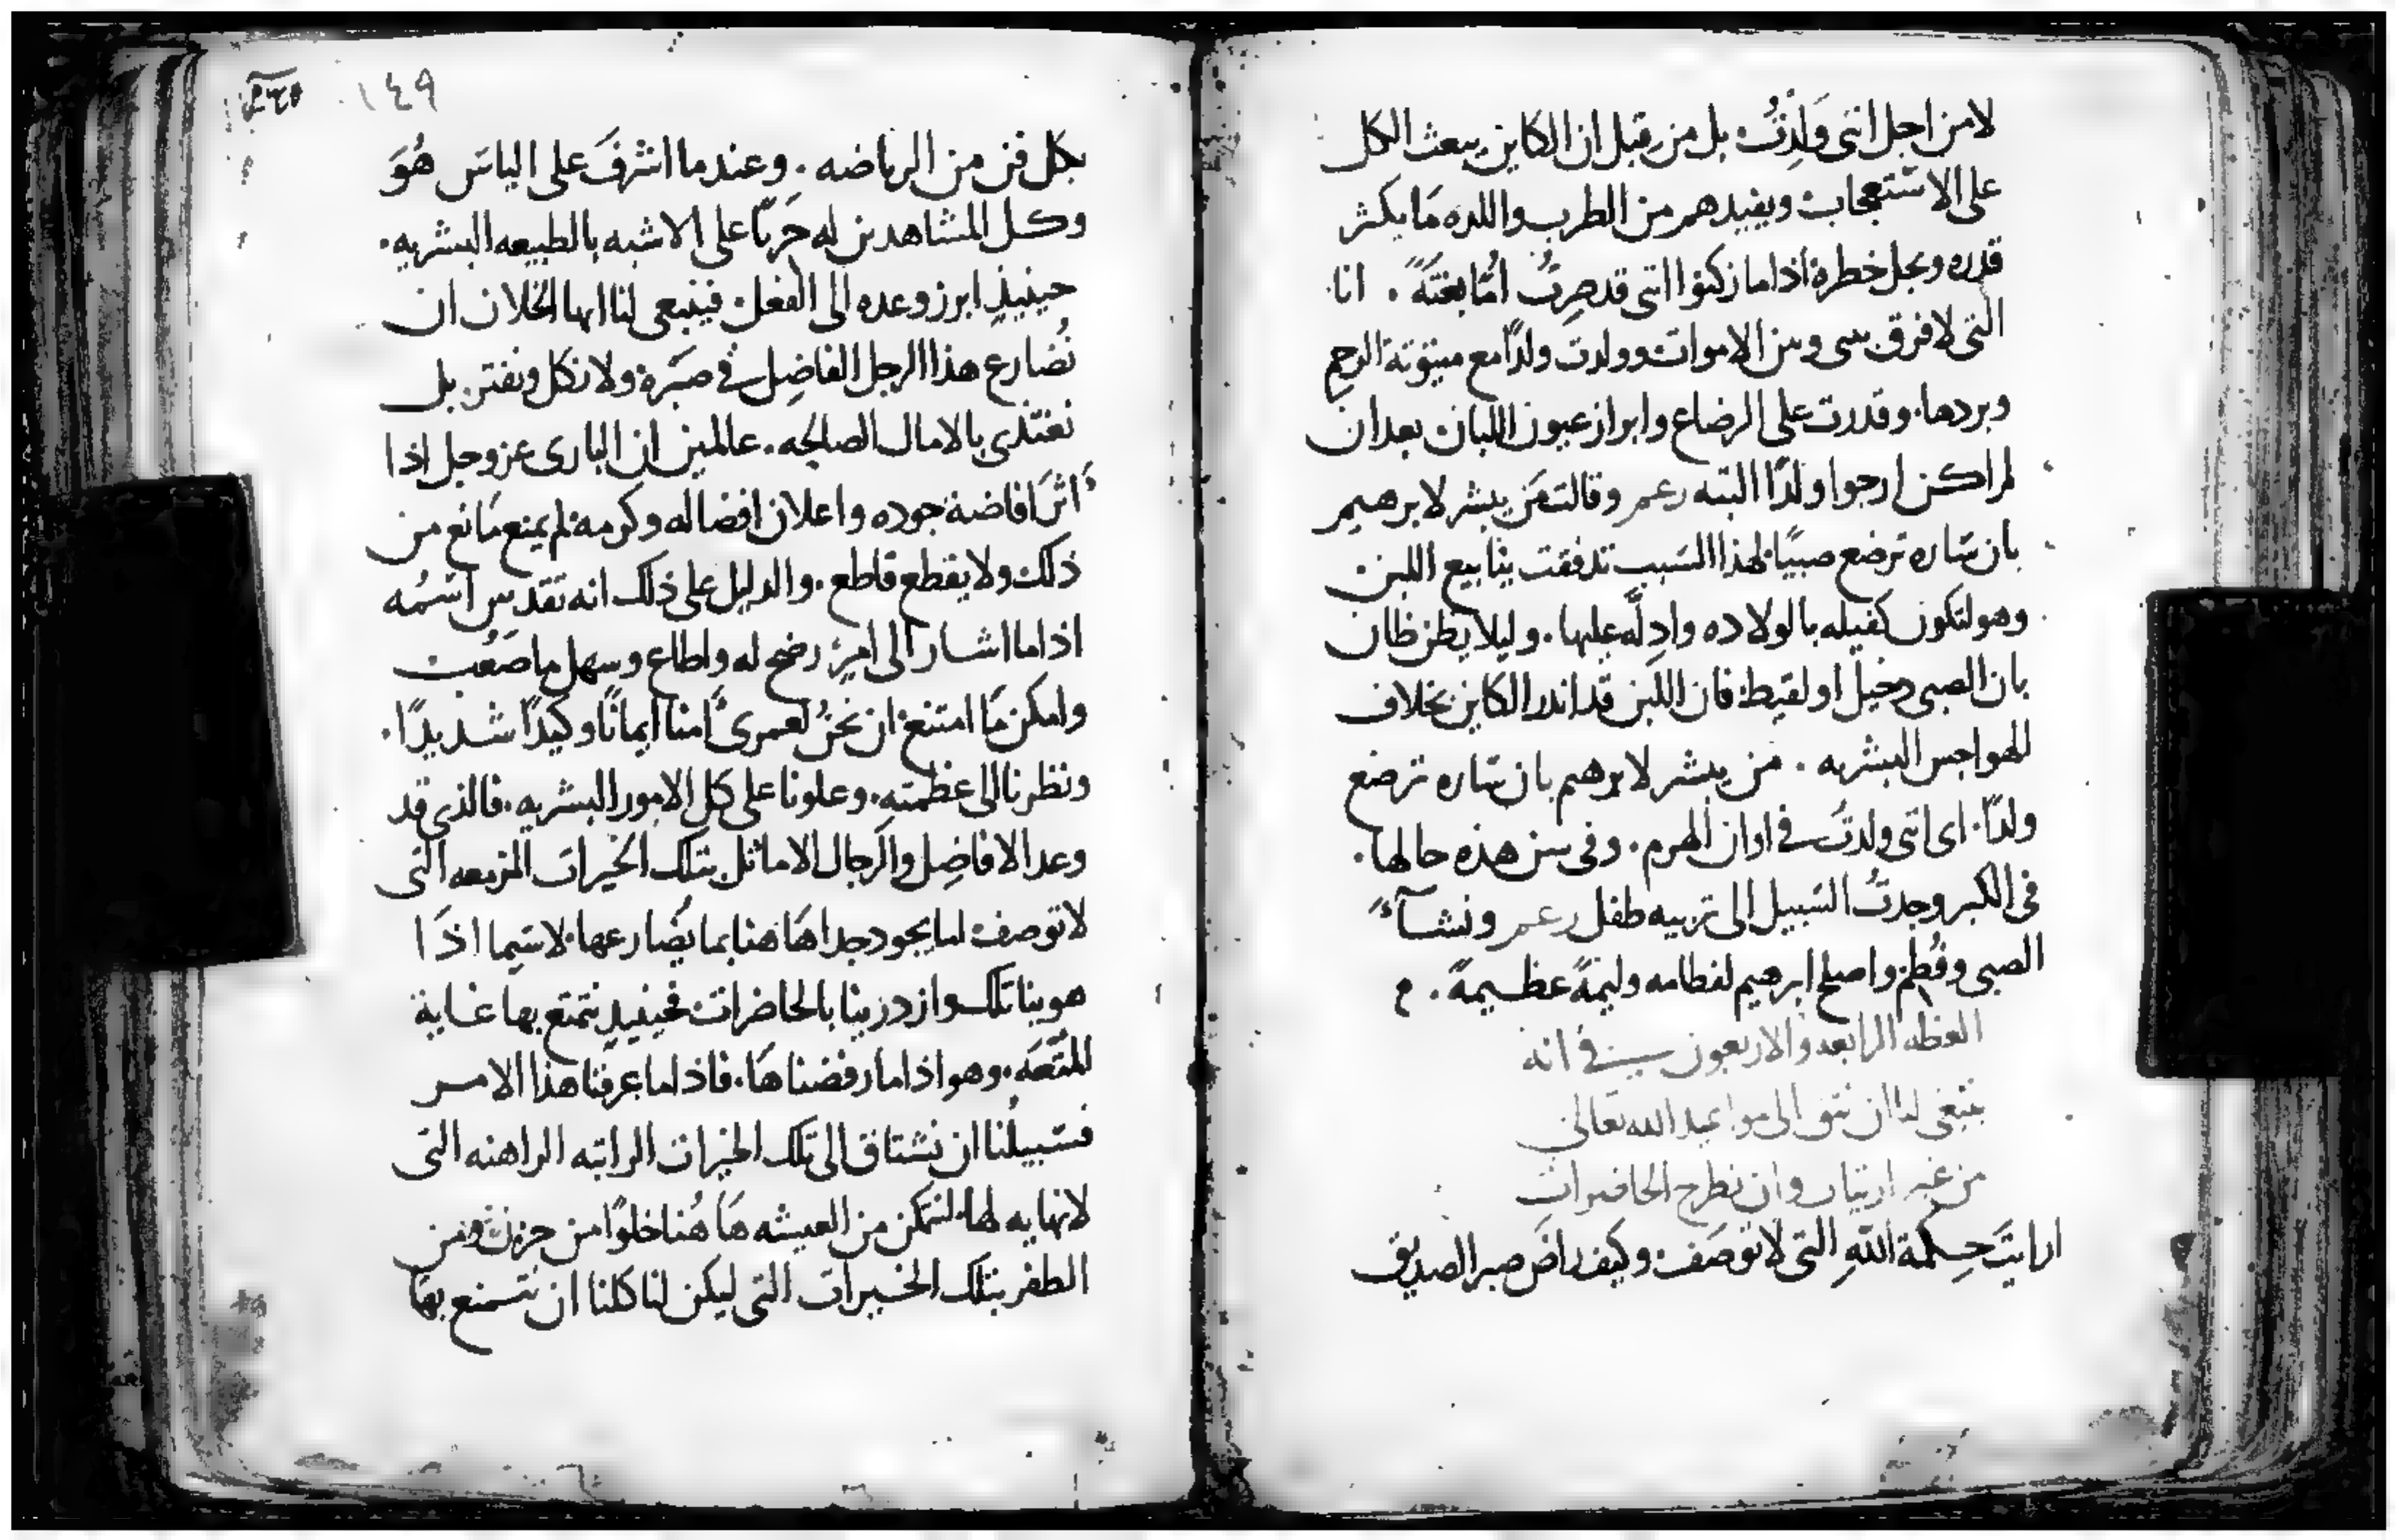 لا من اجل انني وَلَدْتُ بل من قبل ان الكاين يبعث الكل
على الاستعجاب ويفيدهم من الطرب واللده مَا يكثر
قدره ويجل خطره اذا ما زكنوا انني قد صِرتُ امًّا بغتَةً. انا
التي لا فرق بيني وبين الاموات وولدت ولدًا مع ميتوتة الرحِم
وبردها. وقدرت على الرضاع وابراز عيون اللبان بعد ان
لم اكن ارجوا ولدًا البته رعم وقالت مَن يبشر لابرهيم
بان سَاره ترضع صبيًا لهذا السَبب تدفقت ينابيع اللبن
وهو لتكون كفيله بالولاده وادِلَّه عليها. وليلا يظن ظان
بان الصبي دخيل او لقيط فان اللبن قد اندر الكاين بخلاف
الهواجس البشريه. من يبشر لابرهيم بان سَاره ترضع
ولدًا. اى انني ولدتُ في اوان الهرم. وفي سن هذه حالها.
في الكبر وجدتُ السَبيل الى تربيه طفل رعم ونشآءَ
الصبي وفُطِم واصلح ابرهيم لفطامه وليمةً عظيمةً. م
العظه الرابعه والاربعون في انه
ينبغي لنا ان نثق الى مواعيد الله تعالى
من غير ارتياب وان نطرح الحاضرات
ارايتَ حِكمة اللهِ التي لا توصَف وكيف راضَ صبر الصديق
١٤٩
بكل فن من الرياضه. وعندما اشرفَ على الياسَ هُوَ
وكل المشاهدين له جَريًا على الاشبه بالطبيعه البشريه.
حينيذٍ ابرز وعده الى الفعل فينبغي لنا ايها الخلان ان
نُضارع هذا الرجل الفاضِل في صَبره ولا نكل ونفتر بل
نغتدي بالامال الصالحه. عالمين ان البارى عز وجل اذا
اثَر افاضة جوده واعلان افضاله وكرمه لم يمنع مَانع من
ذلك ولا يقطع قاطع. والدليل على ذلك انه تقدس اسمُه
اذا ما اشار الى امرٍ رضخ له واطاع وسهل ما صَعُبَ
وامكن مَا امتنع ان نحنُ لعمرى امنا ايمانًا وكيدًا شديدًا.
ونظرنا الى عظمته. وعلونا على كل الامور البشريه. فالذي قد
وعد الافاضِل والرجال الاماثل بتلك الخيرات المزمعه التي
لا توصف لما يجود جدا هَاهنا بما يُضارعها. لا سَيما اذَا
هوينا تلك وازدرينا بالحاضرات فحينيذٍ نتمتع بها غاية
المتعَه. وهو اذا ما رفضناهَا. فاذا ما عرفنا هذا الامر
فسَبيلُنا ان نشتاق الى تلك الخيرات الراتبه الراهنه التي
لا نهايه لها. لنتمكن من العيشه هَا هُنا خلوًا من حزن ومن
الظفر بتلك الخيرات التي ليكن لنا كلنا ان نتمتع بها